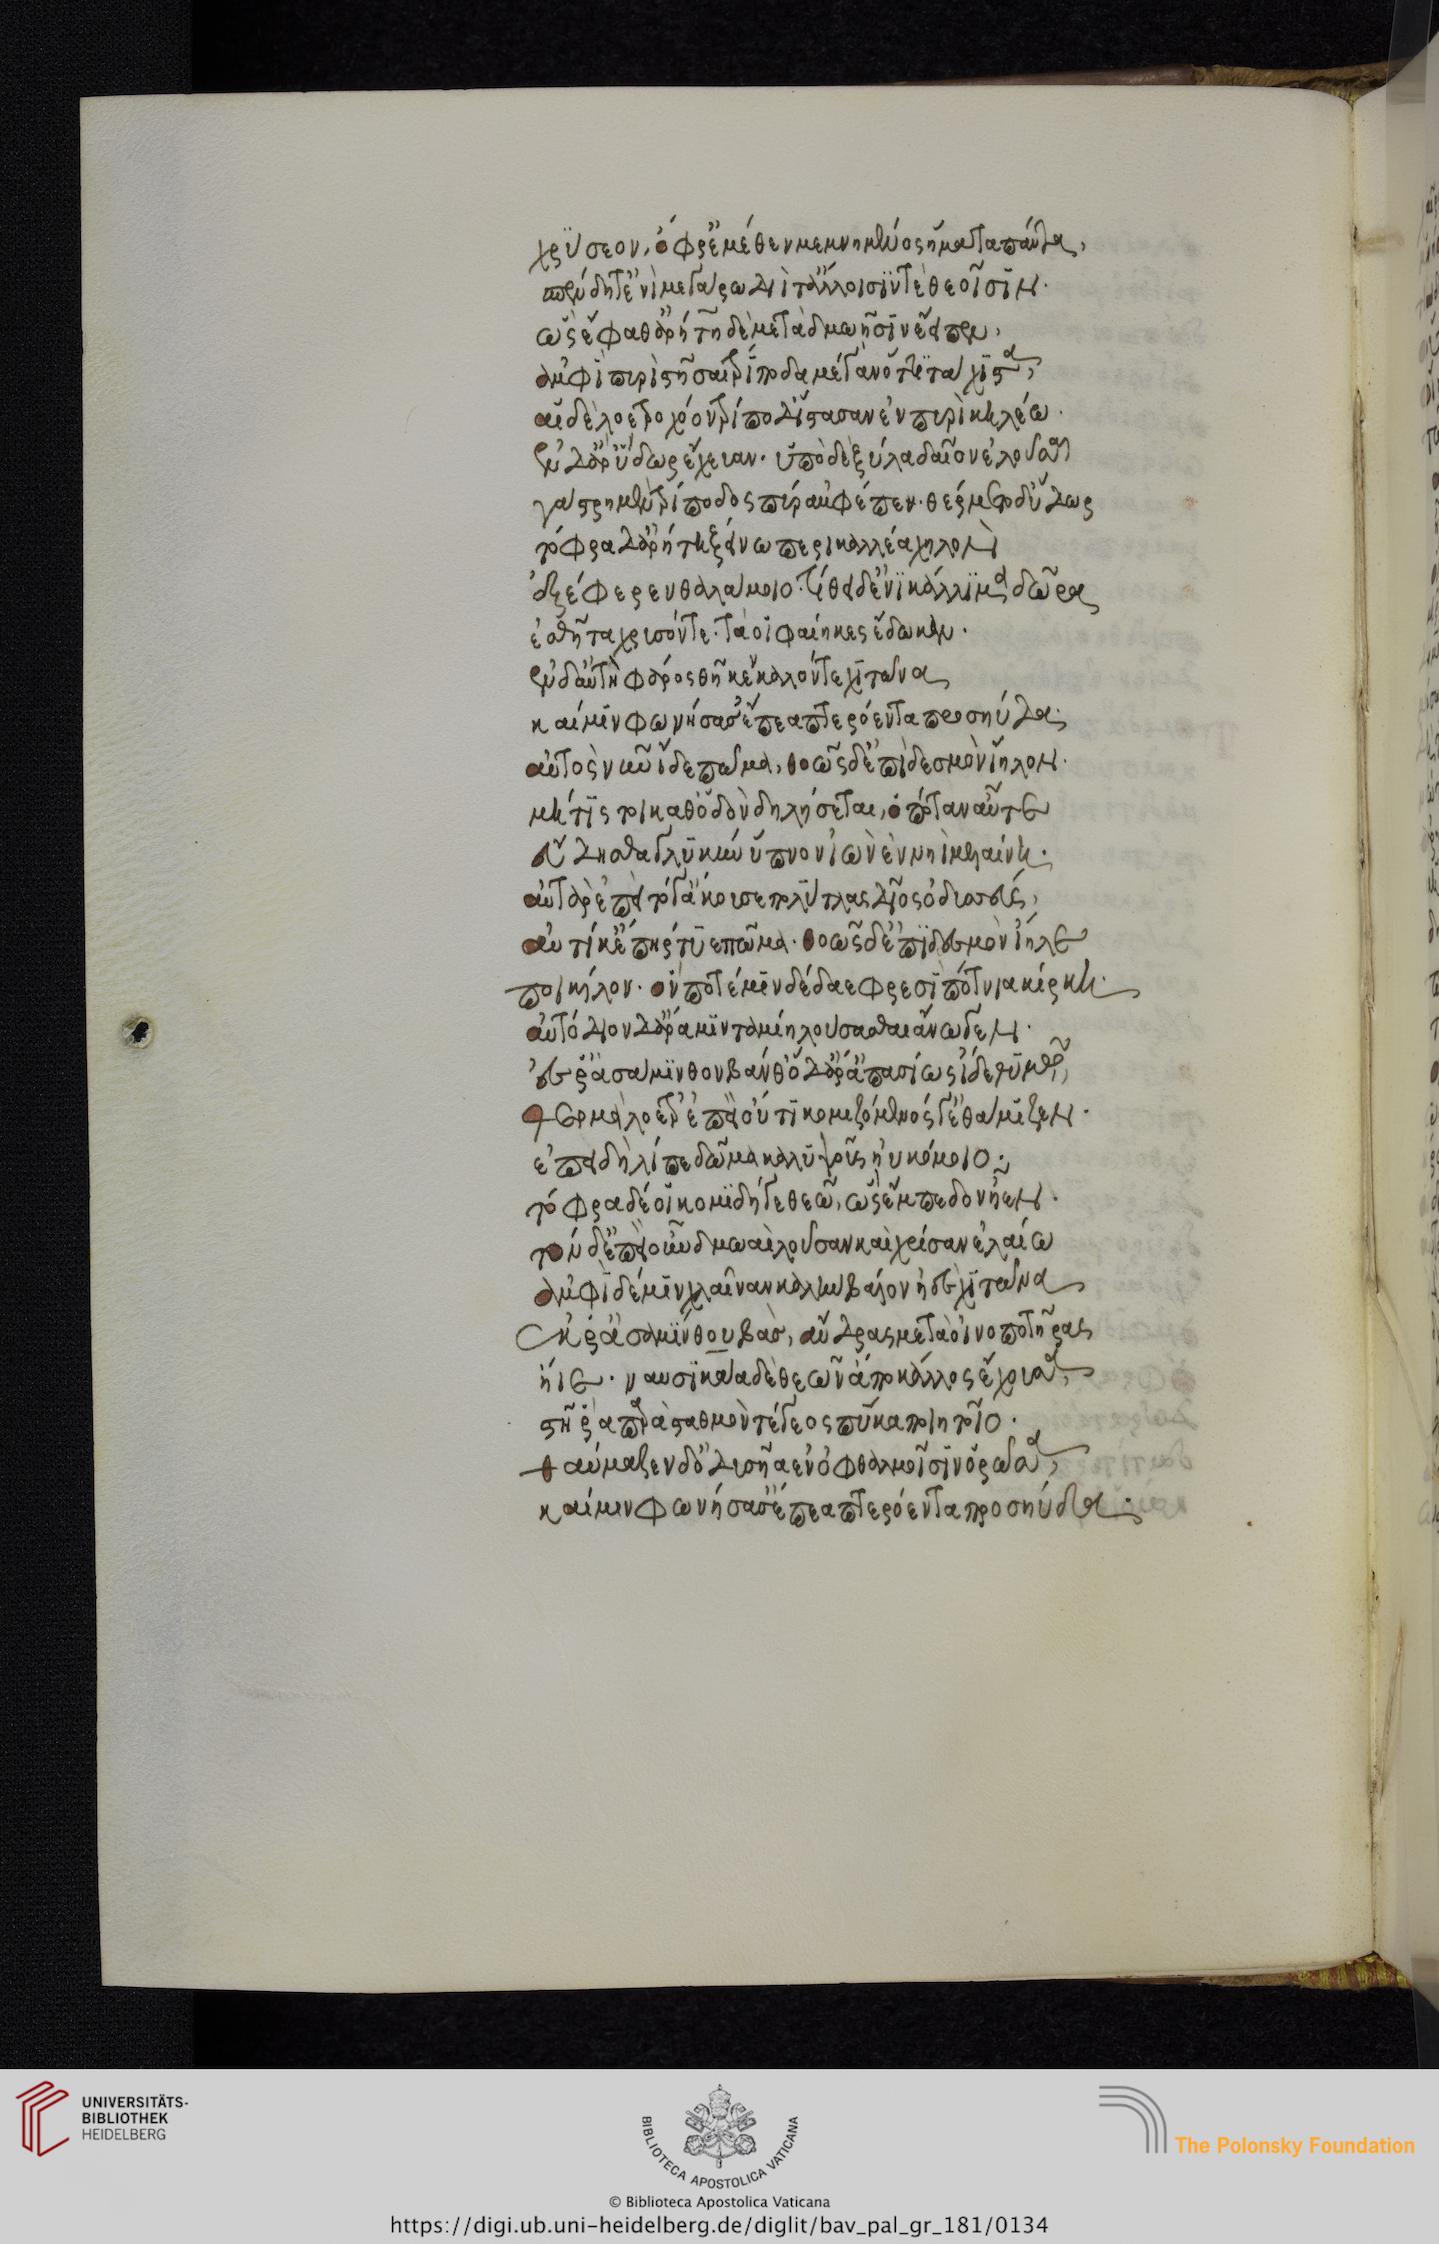 χρύσεον, ὄφρ' ἐμέθεν μεμνημένος ἤματα πάντα,
σπένδῃ τ' ἐνὶ μεγάρῳ Διί τ' ἄλλοισίν τε θεοῖσιν.
ὣς ἔφαθ' Ἀρήτη δὲ μετὰ δμωῇσιν ἔειπεν,
ἀμφὶ πυρὶ στῆσαι τρίποδα μέγαν ὅττι τάχιστα,
αἱ δὲ λοετροχόον τρίποδ' ἵστασαν ἐν πυρὶ κηλέῳ.
ἐν δ' ἄρ' ὕδωρ ἔχεαν. ὑπὸ δὲ ξύλα δαῖον ἑλοῦσαι
γάστρην μὲν τρίποδος πῦρ ἄμφεπεν. θέρμετο δ' ὕδωρ
τόφρα δ' ἄρ' Ἀρήτη ξείνῳ περικαλλέα χηλὸν
ἐξέφερεν θαλάμοιο. τίθει δ' ἐνὶ κάλλιμα δῶρα
ἐσθῆτα χρυσόν τε. τά οἱ Φαίηκες ἔδωκαν.
ἐν δ' αὐτὴ φᾶρος θῆκεν καλόν τε χιτῶνα
καί μιν φωνήσασ' ἔπεα πτερόεντα προσηύδα.
αὐτὸς νῦν ἴδε πῶμα, θοῶς δ' ἐπὶ δεσμὸν ἴηλον.
μή τίς τοι καθ' ὁδὸν δηλήσεται, ὁππόταν αὖτε
εὕδῃσθα γλυκὺν ὕπνον ἰὼν ἐν νηὶ μελαίνῃ.
αὐτὰρ ἐπεὶ τό γ' ἄκουσε πολύτλας δῖος Ὀδυσσεύς,
αὐτίκ' ἐπήρτυε πῶμα. θοῶς δ' ἐπὶ δεσμὸν ἴηλε
ποικίλον. ὅν ποτέ μιν δέδαε φρεσὶ πότνια Κίρκη.
αὐτόδιον δ' ἄρα μιν ταμίη λούσασθαι ἀνώγει.
ἔς ῥ' ἀσάμινθον βάνθ' ὁ δ' ἄρ' ἀσπασίως ἴδε θυμῷ,
θερμὰ λοέτρ' ἐπεὶ οὔτι κομιζόμενός γε θάμιζεν.
ἐπειδὴ λίπε δῶμα Καλυψοῦς ἠυκόμοιο.
τόφρα δέ οἱ κομιδή γε θεῷ, ὣς ἔμπεδον ἦεν.
τὸν δ' ἐπεὶ οὖν δμωαὶ λοῦσαν καὶ χρῖσαν ἐλαίῳ
ἀμφὶ δέ μιν χλαῖναν καλὴν βάλον ἠδὲ χιτῶνα
ἔκ ῥ' ἀσαμίνθου βὰς, ἄνδρας μετὰ οἰνοποτῆρας
ἤιε. Ναυσικάα δὲ θεῶν ἄπο κάλλος ἔχουσα,
στῆ ῥα παρὰ σταθμὸν τέγεος πύκα ποιητοῖο.
θαύμαζεν δ' Ὀδυσῆα ἐν ὀφθαλμοῖσιν ὁρῶσα,
καί μιν φωνήσασ' ἔπεα πτερόεντα προσηύδα.
UNIVERSITÄTS-
BIBLIOTHEK
HEIDELBERG
BIBLIOTECA APOSTOLICA VATICANA
The Polonsky Foundation
© Biblioteca Apostolica Vaticana
https://digi.ub.uni-heidelberg.de/diglit/bav_pal_gr_181/0134